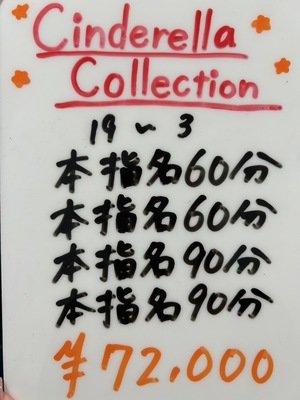 Cinderella
Collection
19～3
本指名60分
本指名60分
本指名90分
本指名90分
¥72,000